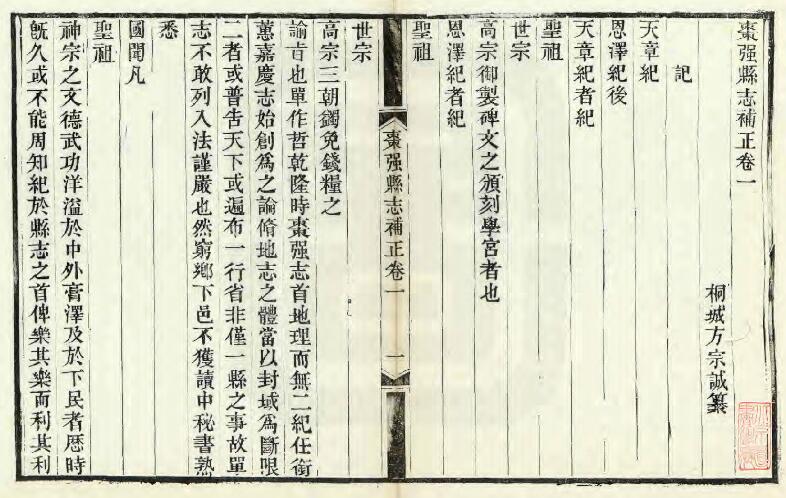 棗强縣志補正卷一
桐城方宗誠纂
記
天章紀
恩澤紀後
天章紀者紀
聖祖
世宗
高宗御製碑文之頒刻學宮者也
恩澤紀者紀
聖祖
棗强縣志補正卷一 一
世宗
高宗三朝蠲免錢糧之
諭旨也單作哲乾隆時棗强志首地理而無二紀任銜
蕙嘉慶志始創爲之論脩地志之體當以封域爲斷限
二者或普告天下或遍布一行省非僅一縣之事故單
志不敢列入法謹嚴也然窮鄉下邑不獲讀中秘書熟
悉
國聞凡
聖祖
神宗之文德武功洋溢於中外膏澤及於下民者厯時
旣久或不能周知紀於縣志之首俾樂其樂而利其利